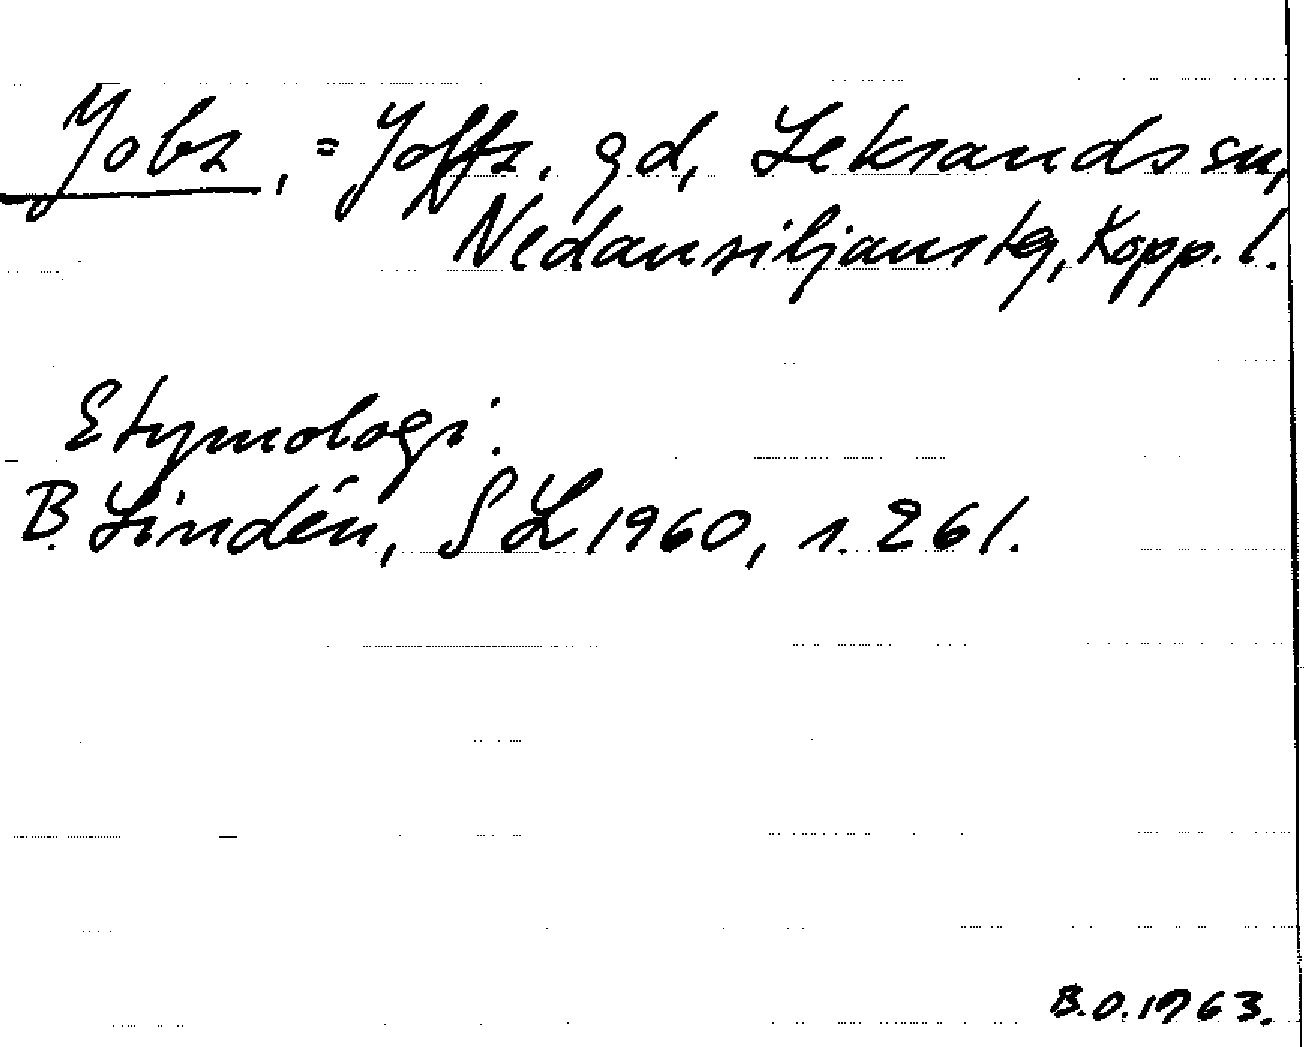 Jobs, = Joffs. gd, Leksands sn,
Nedansiljans tg, Kopp. l.
Etymologi:
B. Lindén, SL 1960, s. 261.
B.O. 1963.